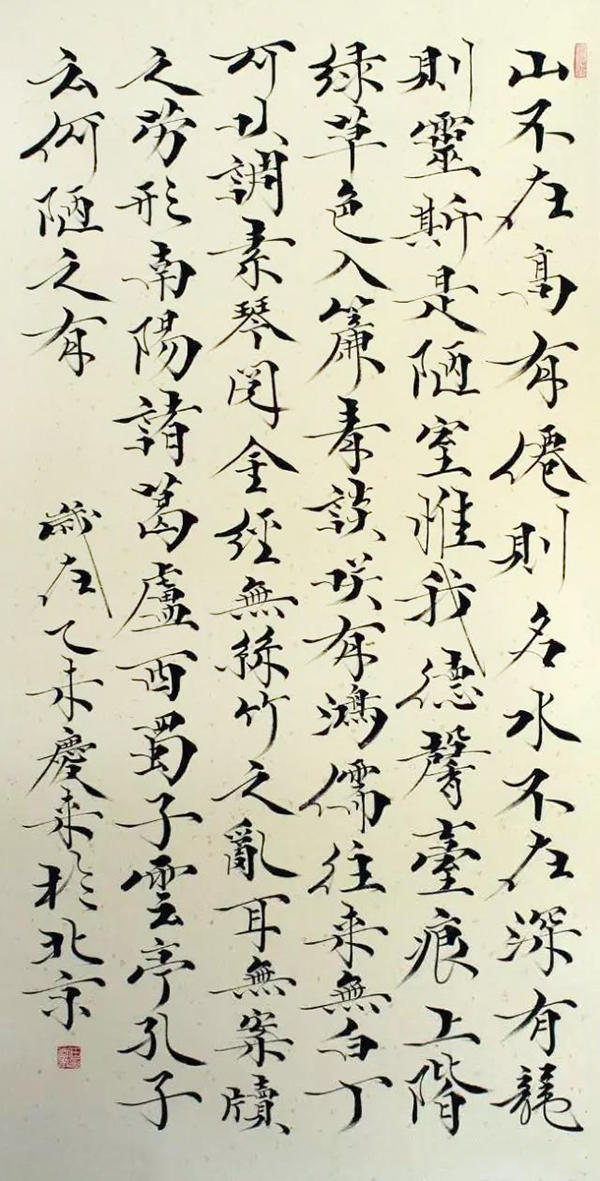 山不在高有僊則名水不在深有龍
則靈斯是陋室惟我德馨臺痕上階
緑草色入簾青談咲有鴻儒往来無白丁
可以調素琴閱金經無絲竹之亂耳無案牘
之劳形南陽諸葛盧西蜀子雲亭孔子
云何陋之有
歲在乙未慶来於北京